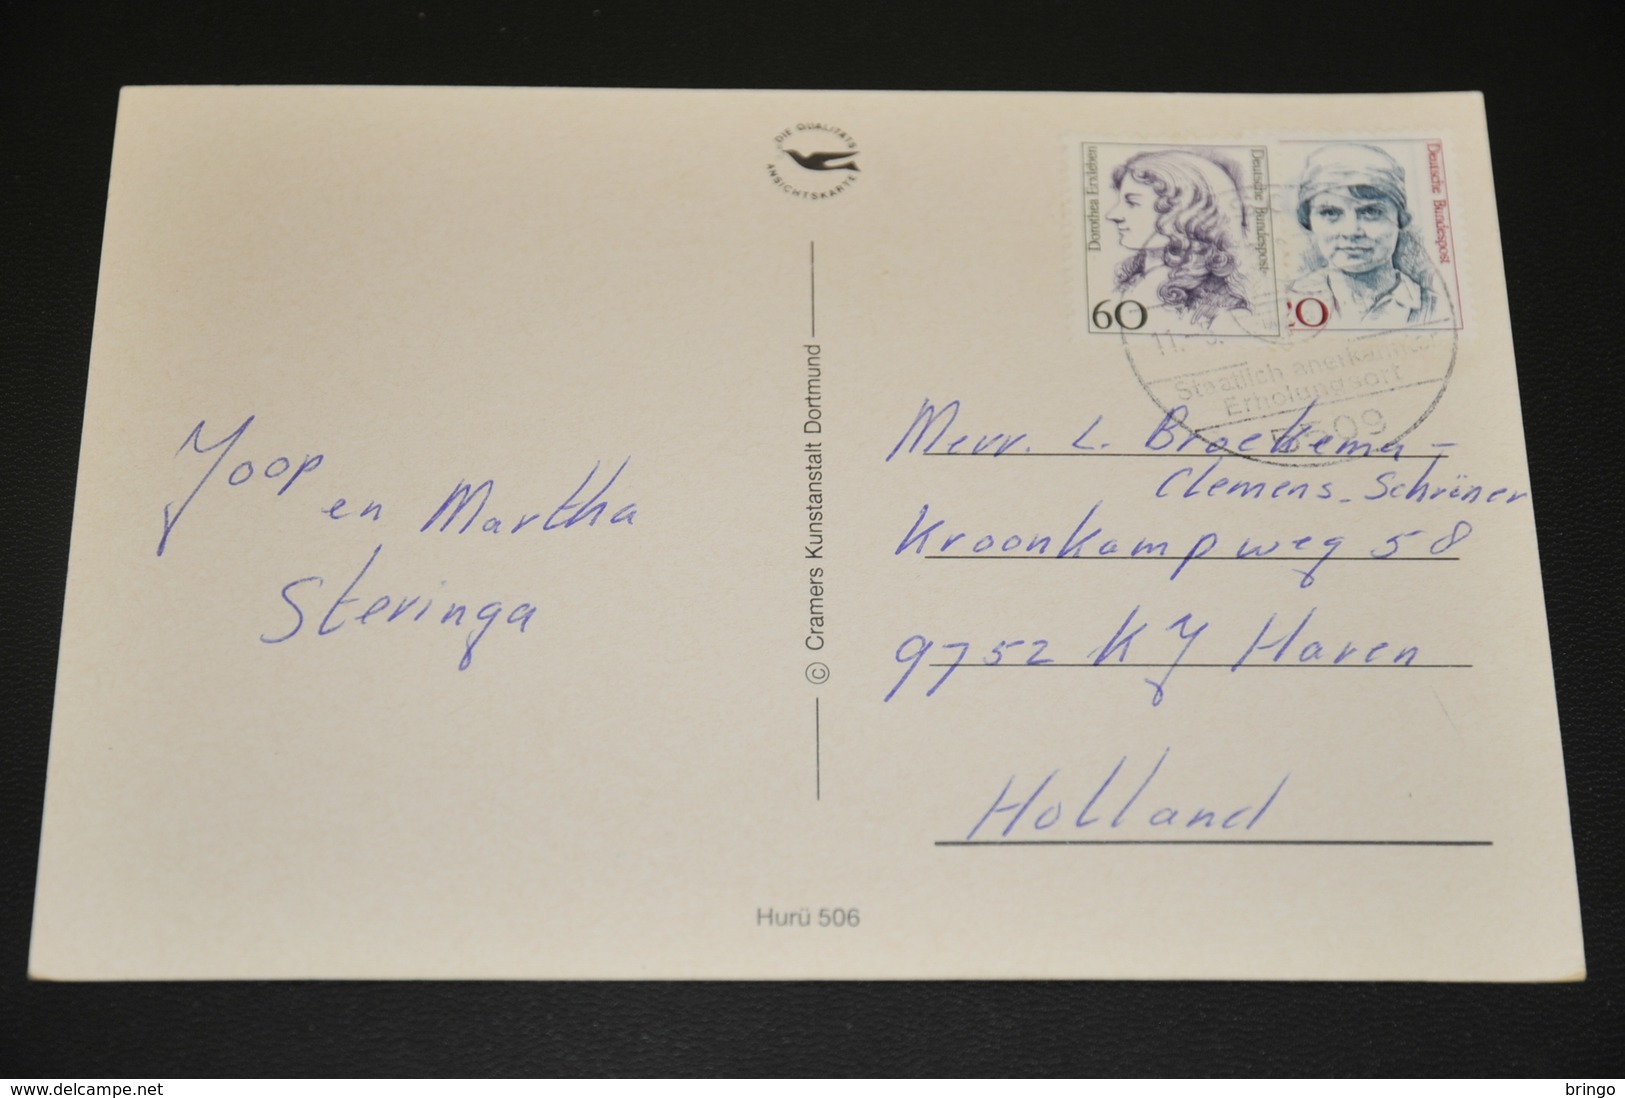 DIE QUALITÄTS
ANSICHTSKARTE
Dorothea Erxleben
Deutsche Bundespost
60
Deutsche Bundespost
20
11.
Staatlich anerkannter
Erholungsort
5509
Yoop
en Martha
Steringa
© Cramers Kunstanstalt Dortmund
Mevr. L. Broekema -
Clemens - Schröner
Kroonkampweg 58
9752 KJ Haren
Holland
Hurü 506
delcampe.net
bringo